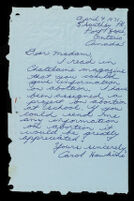 April 4, 1971
Port Hope
Ontario
Canada
Dear Madam,
I read in
Chatelaine magazine
that you could
give information
on abortion. I have
been assigned a
project on abortion
at school. If you
could send me
information
on abortion, it
would be greatly
appreciated!
Yours sincerely
Carol